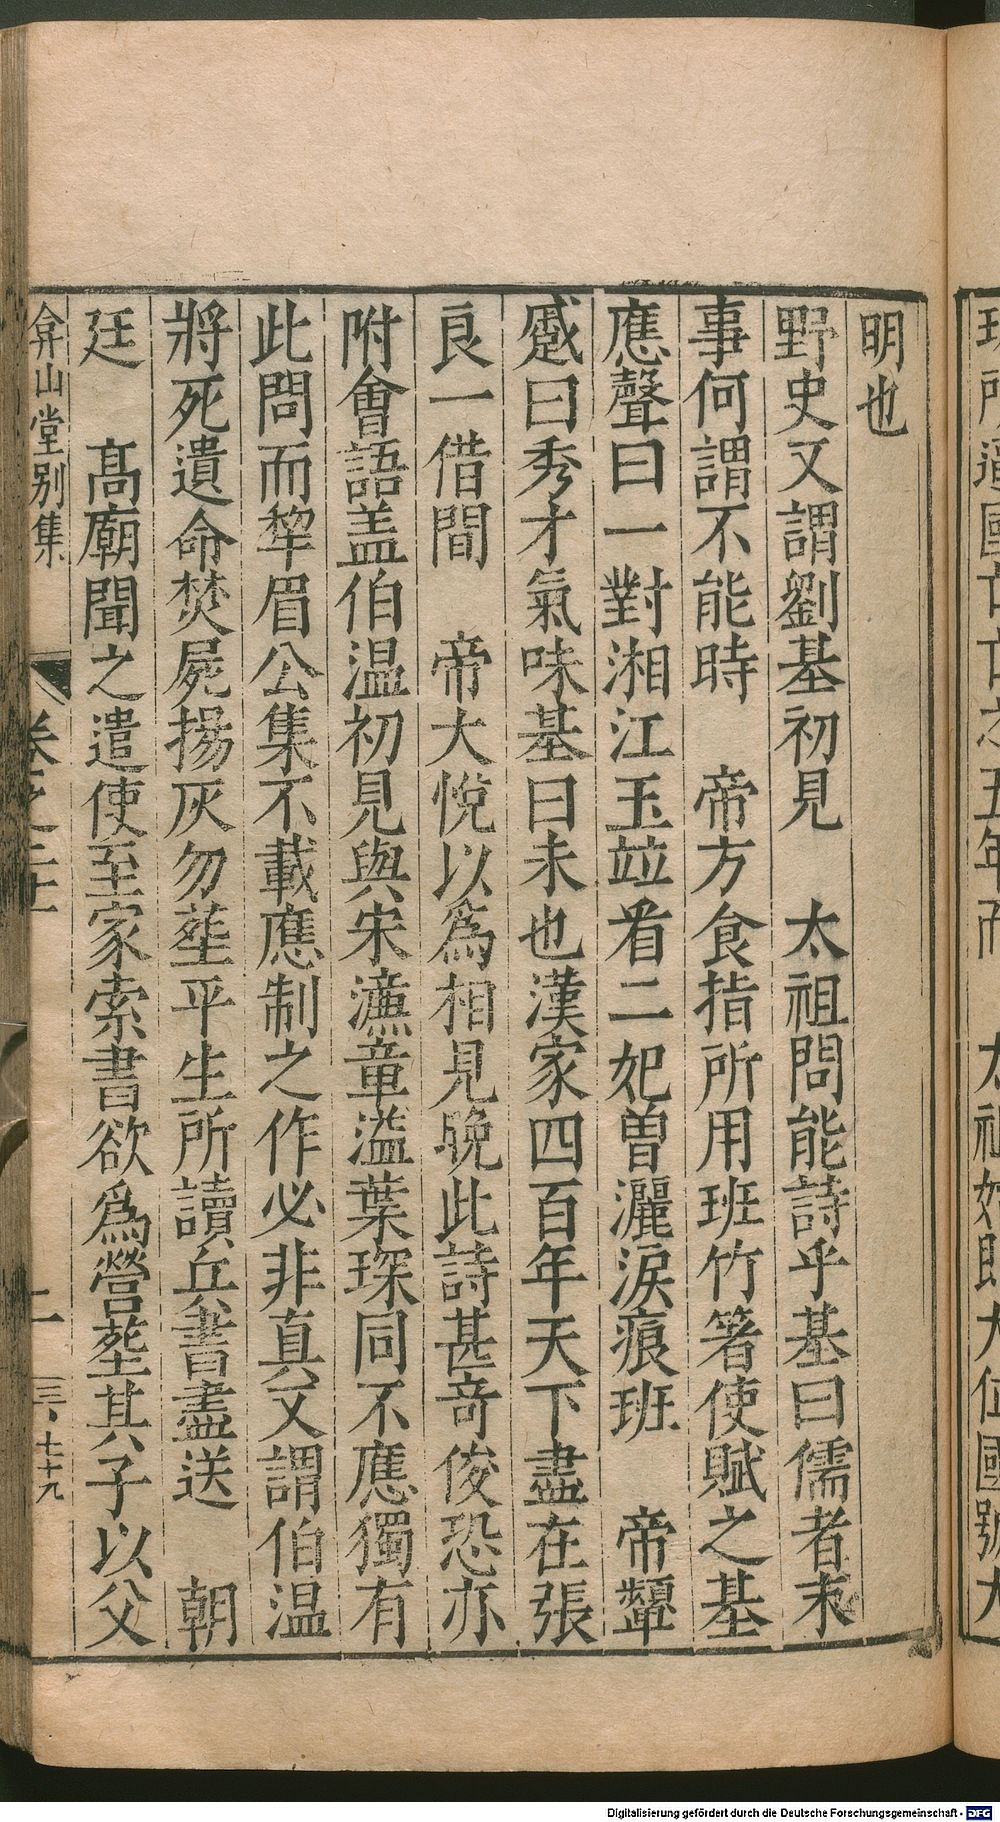 明也
野史又謂劉基初見　太祖問能詩乎基曰儒者末
事何謂不能時　帝方食指所用班竹箸使賦之基
應聲曰一對湘江玉竝看二妃曽灑淚痕班　帝顰
蹙曰秀才氣味基曰未也漢家四百年天下盡在張
良一借間　帝大悅以為相見晚此詩甚竒俊恐亦
附會語盖伯温初見與宋濂章溢葉琛同不應獨有
此問而犂眉公集不載應制之作必非真又謂伯温
將死遺命焚屍揚灰勿塟平生所讀兵書盡送　朝
廷　髙廟聞之遣使至家索書欲爲營塟其子以父
弇山堂别集
二
三、七十九
Digitalisierung gefördert durch die Deutsche Forschungsgemeinschaft - DFG